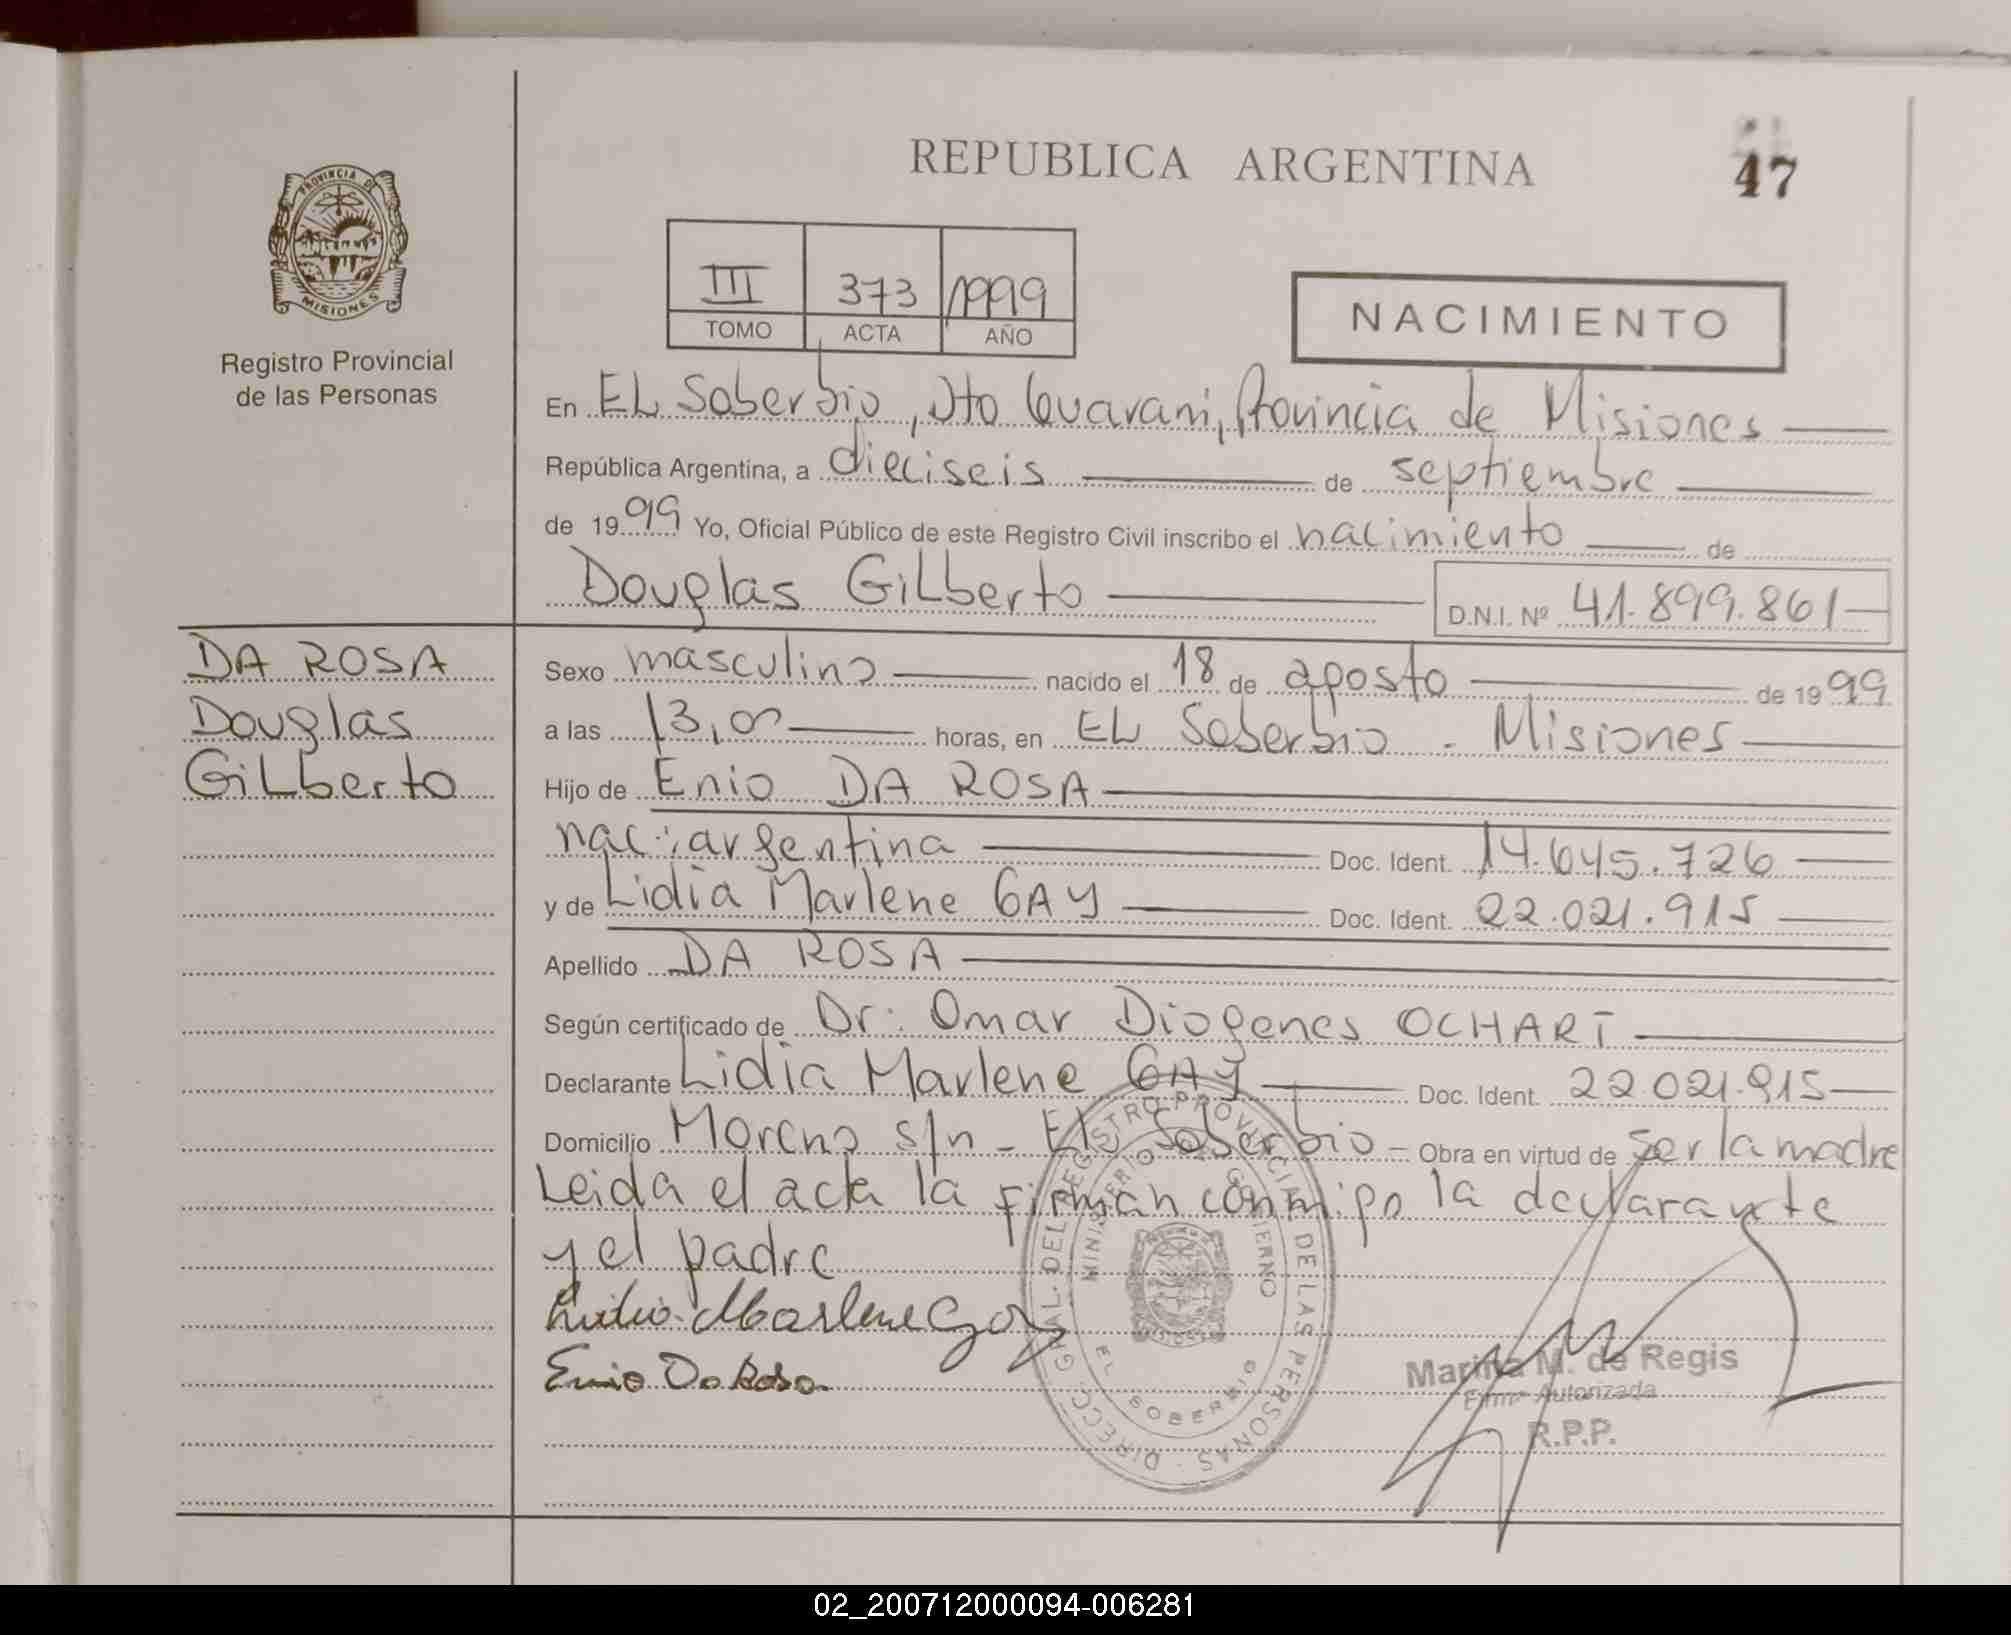 REPUBLICA ARGENTINA
47
PROVINCIA DE
MISIONES
Registro Provincial
de las Personas
III 373 1999
TOMO ACTA AÑO
NACIMIENTO
En EL Soberbio, Dto Guarani, Provincia de Misiones
República Argentina, a dieciseis de septiembre
de 1999 Yo, Oficial Público de este Registro Civil inscribo el nacimiento de
Douglas Gilberto D.N.I. Nº 41.899.861
DA ROSA
Douglas
GiLberto
Sexo masculino nacido el 18 de agosto de 1999
a las 13,00 horas, en EL Soberbio - Misiones
Hijo de Enio DA ROSA
nac: argentina Doc. Ident. 14.645.726
y de Lidia Marlene GAY Doc. Ident. 22.021.915
Apellido DA ROSA
Según certificado de Dr: Omar Diogenes OCHART
Declarante Lidia Marlene GAY Doc. Ident. 22.021.915
Domicilio Moreno s/n - EL Soberbio - Obra en virtud de ser la madre
Leida el acta la firman conmigo la declarante
y el padre
Lidia Marlene Gay
Enio Da Rosa
DIRECC. GRAL. DEL REGISTRO PROVINCIAL DE LAS PERSONAS
MINISTERIO DE GOBIERNO
EL SOBERBIO
Marina M. de Regis
Firma Autorizada
R.P.P.
02_200712000094-006281